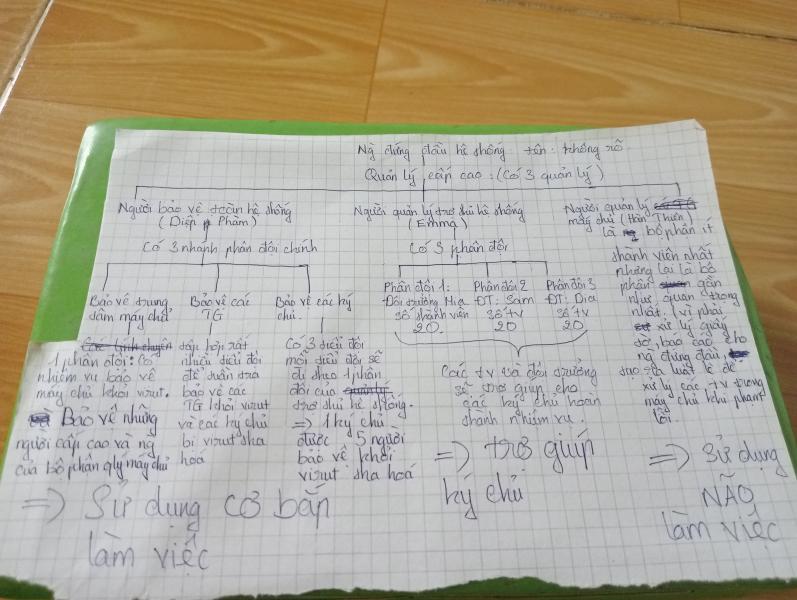 Ng đứng đầu hệ thống tên: không rõ
Quản lý cấp cao: (Có 3 quản lý)
Người bảo vệ toàn hệ thống
(Diệp Phàm)
Có 3 nhánh phân đội chính
Bảo vệ trung
tâm máy chủ
1 phân đội: Có
nhiệm vụ bảo vệ
máy chủ khỏi virut.
Bảo vệ những
người cấp cao và ng
của bộ phận qlý máy chủ
Bảo vệ các
TG
tập hợp rất
nhiều tiểu đội
để tuần tra
bảo vệ các
TG khỏi virut
và các ký chủ
bị virut tha
hoá
Bảo vệ các ký
chủ.
Có 3 tiểu đội
mỗi tiểu đội sẽ
đi theo 1 phân
đội của
trợ thủ hệ thống.
=> 1 ký chủ
được 5 người
bảo vệ khỏi
virut tha hoá
=> Sử dụng cơ bắp
làm việc
Người quản lý trợ thủ hệ thống
(Emma)
Có 3 phân đội
Phân đội 1:
Đội trưởng Mia
số thành viên
20.
Phân đội 2
ĐT: Sam
số tv
20
Phân đội 3
ĐT: Dia
số tv
20
Các tv và đội trưởng
sẽ trợ giúp cho
các ký chủ hoàn
thành nhiệm vụ.
=> trợ giúp
ký chủ
Người quản lý
máy chủ (Hàn Thiên)
là bộ phận ít
thành viên nhất
nhưng lại là bộ
phận gần
như quan trọng
nhất. Vì phải
xử lý giấy
tờ, báo cáo cho
ng đứng đầu,
tạo ra luật lệ để
xử lý các tv trong
máy chủ khi phạm
lỗi.
=> Sử dụng
NÃO
làm việc